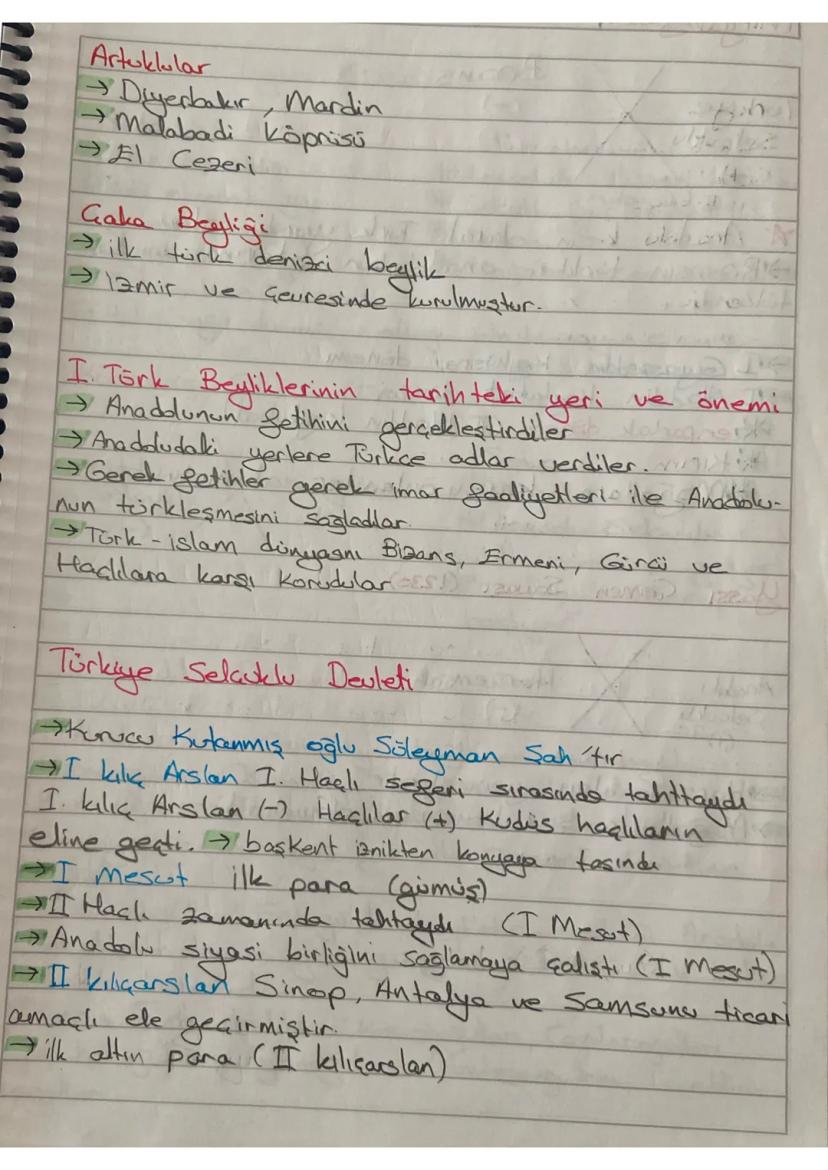 Artuklular
→ Diyerbakır, Mardin
→ Malabadi Köprüsü
→ El Cezeri
Çaka Beyliği
→ ilk türk denizci beylik
→ izmir ve çevresinde kurulmuştur.
I. Türk Beyliklerinin tarihteki yeri ve önemi
→ Anadolunun fetihini gerçekleştirdiler
→ Anadoludaki yerlere Türkçe adlar verdiler.
→ Gerek fetihler gerek imar faaliyetleri ile Anadolu-
nun türkleşmesini sağladılar.
→ Türk-islam dünyasını Bizans, Ermeni, Gürcü ve
Haçlılara karşı korudular
Türkiye Selçuklu Devleti
→ Kurucu Kutanmış oğlu Süleyman Şah'tır
→ I kılıç Arslan I. Haçlı seferi sırasında tahttaydı
I. kılıç Arslan (-) Haçlılar (+) Kudüs haçlıların
eline geçti. → başkent iznikten konyaya taşındı
→ I mesut ilk para (gümüş)
→ II Haçlı zamanında tahtaydı (I Mesut)
→ Anadolu siyasi birliğini sağlamaya çalıştı (I mesut)
→ II kılıçarslan Sinop, Antalya ve Samsunu ticari
amaçlı ele geçirmiştir.
→ ilk altın para (II kılıçarslan)